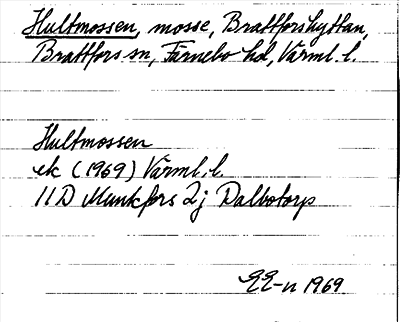 Hultmossen, mosse, Brattforshyttan,
Brattfors sn, Färnebo hd, Värml. l.
Hultmossen
ek (1969) Värml. l.
11D Munkfors 2j Dalbotorp
EE-n 1969.